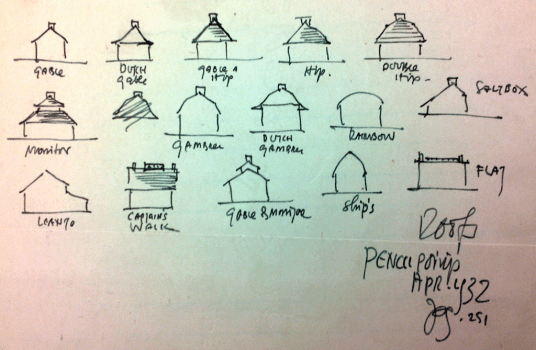 GABLE
DUTCH
GABLE
GABLE &
HIP
HIP.
DOUBLE
HIP-
MONITOR
GAMBREL
DUTCH
GAMBREL
RAINBOW
SALTBOX
LEANTO
CAPTAINS
WALK
GABLE & MONITOR
SHIP'S
FLAT
ROOFS
PENCIL POINTS
APR. 1932
pg. 251